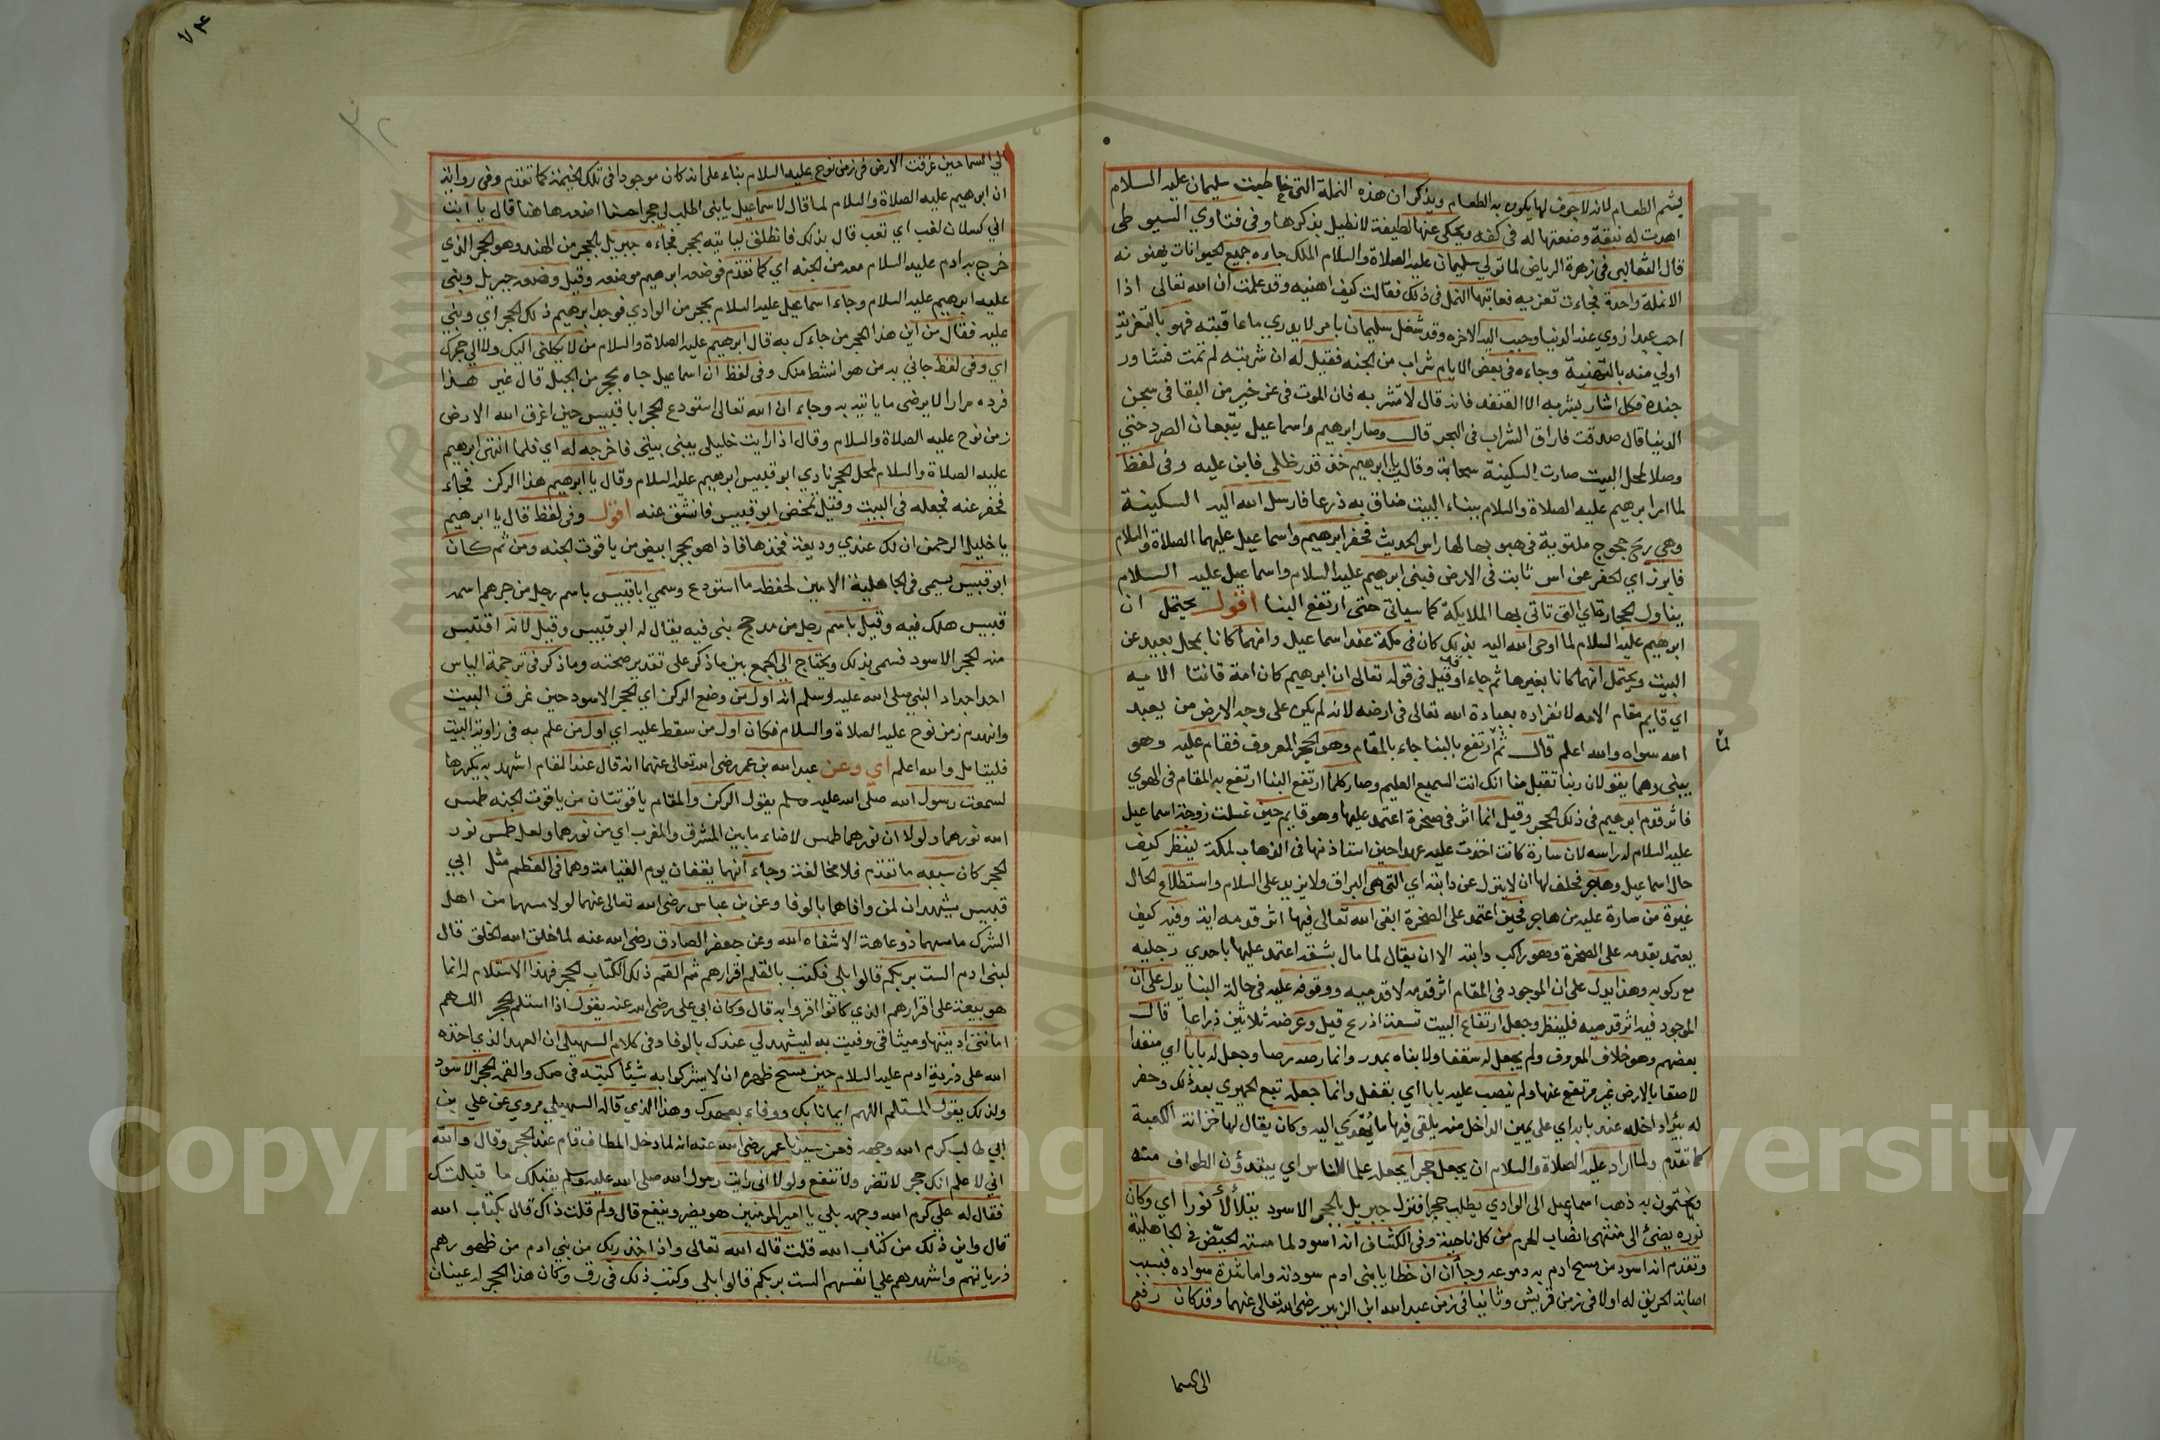 يشم الطعام لانه لا جوف لها يكون به الطعام ويذكر ان هذه النملة التي خاطبت سليمان عليه السلام
اهدت له نبقة وضعتها له في كفه ويحكى عنها لطيفة لا نطيل بذكرها وفي فتاوي السيوطي
قال الثعالبي في زهرة الرياض لما تولي سليمان عليه الصلاة والسلام الملك جاءه جميع الحيوانات يهنونه
الا نملة واحدة فجاءت تعزيه فعاتبها النمل في ذلك فقالت كيف اهنيه وقد علمت ان الله تعالى اذا
احب عبدا زوي عنه الدنيا وحبب اليه الاخره وقد شغل سليمان بامر لا يدري ما عاقبته فهو بالتعزية
اولي منه بالتهنية وجاءه في بعض الايام شراب من الجنه فقيل له ان شربته لم تمت فشاور
جنده فكل اشار بشربه الا القنفد فانه قال لا تشربه فان الموت في عز خير من البقا في سجن
الدنيا قال صدقت فاراق الشراب في البحر قال وصار ابرهيم واسماعيل يتبعان الصرد حتي
وصلا لمحل البيت صارت السكينة سحابة وقالت يا ابرهيم خذ قدر ظلي فابن عليه وفي لفظ
لما امر ابرهيم عليه الصلاة والسلام ببناء البيت ضاق به ذرعا فارسل الله اليه السكينة
وهي ريح خجوج ملتوية في هبوبها لها راس الحديث فحفر ابرهيم واسماعيل عليهما الصلاة والسلام
فابرز اي الحفر عن اس ثابت في الارض فبنى ابرهيم عليه السلام واسماعيل عليه السلام
يناول الحجارة اي التي تاتي بها الملايكة كما سياتي حتى ارتفع البنا اقول يحتمل ان
ابرهيم عليه السلام لما اوحى الله اليه بذلك كان في مكة عند اسماعيل وانهما كانا بمحل بعيد عن
البيت ويحتمل انهما كانا بغيرها ثم جاءا وقيل في قوله تعالى ان ابرهيم كان امة قانتا الاية
اي قايم مقام الامه لانفراده بعبادة الله تعالى في ارضه لانه لم يكن على وجه الارض من يعبد
الله سواه والله اعلم قال ثم ارتفع بالبنا جاء بالمقام وهو الحجر المعروف فقام عليه وهو
لما
يبني وهما يقولان ربنا تقبل منا انك انت السميع العليم وصار كلما ارتفع البنا ارتفع به المقام في الهوي
فاثر قدم ابرهيم في ذلك الحجر وقيل انما اثر في صخرة اعتمد عليها وهو قايم حين غسلت زوجة اسماعيل
عليه السلام له راسه لان سارة كانت اخذت عليه عهدا حين استاذنها في الذهاب لمكة لينظر كيف
حال اسماعيل وهاجر فحلف لها ان لا ينزل عن دابته اي التي هي البراق ولا يزيد على السلام واستطلاع الحال
غيرة من سارة عليه من هاجر فحين اعتمد على الصخرة ابقى الله تعالى فيها اثر قدمه اية وفيه كيف
يعتمد بقدمه على الصخرة وهو راكب دابته الا ان يقال لما مال بشقه اعتمد عليها باحدي رجليه
مع ركوبه وهذا يدل على ان الموجود في المقام اثر قدمه لا قدميه ووقوفه عليه في حالة البنا يدل على ان
الموجود فيه اثر قدميه فلينظر وجعل ارتفاع البيت تسعة اذرع قيل وعرضه ثلاثين ذراعا قال
بعضهم وهو خلاف المعروف ولم يجعل له سقفا ولا بناه بمدر وانما رصه رصا وجعل له بابا اي منفذا
لاصقا بالارض غير مرتفع عنها ولم ينصب عليه بابا اي بقفل وانما جعله تبع الحميري بعد ذلك وحفر
له بئرا داخله عند بابه اي على يمين الداخل منه يلقى فيها ما يُهدَي اليه وكان يقال لها خزانة الكعبة
كما تقدم ولما اراد عليه الصلاة والسلام ان يجعل حجرا يجعله علما للناس اي يبتدؤن الطواف منه
ويختمون به ذهب اسماعيل الى الوادي يطلب حجرا فنزل جبريل بالحجر الاسود يتلألأ نورا اي وكان
نوره يضئ الى منتهى انصاب الحرم من كل ناحية وفي الكشاف انه اسود لما مسته الحيّض في الجاهلية
وتقدم انه اسود من مسح ادم به دموعه وجأ ان خطايا بني ادم سودته واما شدة سواده فبسبب
اصابة الحريق له اولا في زمن قريش وثانيا في زمن عبد الله ابن الزبير رضي الله تعالى عنهما وقد كان رفع
الى السما
٧٤
الي السما حين غرقت الارض في زمن نوح عليه السلام بناء على انه كان موجودا في تلك الخيمة كما تقدم وفي رواية
ان ابرهيم عليه الصلاة والسلام لما قال لاسماعيل يا بني اطلب لي حجرا حسنا اضعه هاهنا قال يا ابت
اني كسلان لغب اي تعب قال بذلك فانطلق لياتيه بحجر فجاءه جبريل بالحجر من الهند وهو الحجر الذي
خرج به ادم عليه السلام معه من الجنه اي كما تقدم فوضعه ابرهيم موضعه وقيل وضعه جبريل وبنى
عليه ابرهيم عليه السلام وجاء اسماعيل عليه السلام بحجر من الوادي فوجد ابرهيم ذلك الحجر اي وبني
عليه فقال من اين هذا الحجر من جاءك به قال ابرهيم عليه الصلاة والسلام من لا يكلني اليك ولا الي حجرك
اي وفي لفظ جاني به من هو انشط منك وفي لفظ ان اسماعيل جاه بحجر من الجبل قال غير هذا
فرده مرارا لا يرضى ما ياتيه به وجاء ان الله تعالى استودع الحجر ابا قبيس حين اغرق الله الارض
زمن نوح عليه الصلاة والسلام وقال اذا رايت خليلي يبني بيتي فاخرجه له اي فلما انتهى ابرهيم
عليه الصلاة والسلام لمحل الحجر نادي ابو قبيس ابرهيم عليه السلام وقال يا ابرهيم هذا الركن فجاء
فحفر عنه فجعله في البيت وقيل تمخض ابو قبيس فانشق عنه اقول وفي لفظ قال يا ابرهيم
يا خليل الرحمن ان لك عندي وديعة فخذها فاذا هو بحجر ابيض من ياقوت الجنه ومن ثم كان
ابو قبيس يسمى في الجاهلية الامين لحفظه ما استودع وسمي ابا قبيس باسم رجل من جرهم اسمه
قبيس هلك فيه وقيل باسم رجل من مدحج بنى فيه يقال له ابو قبيس وقيل لانه اقتبس
منه الحجر الاسود فسمى بذلك ويحتاج الي الجمع بين ما ذكر على تقدير صحته وما ذكر في ترجمة الياس
احد اجداد النبي صلى الله عليه وسلم انه اول من وضع الركن اي الحجر الاسود حين غرق البيت
وانهدم زمن نوح عليه الصلاة والسلام فكان اول من سقط عليه اي اول من علم به في زاوية البيت
فليتامل والله اعلم اي وعن عبد الله بن عمر رضي الله تعالى عنهما انه قال عند المقام اشهد بالله يكررها
لسمعت رسول الله صلى الله عليه وسلم يقول الركن والمقام ياقوتتان من ياقوت الجنه طمس
الله نورهما ولولا ان نورهما طمس لاضاء ما بين المشرق والمغرب اي من نورهما ولعل طمس نور
الحجر كان سببه ما تقدم فلا مخالفة وجاء انهما يقفان يوم القيامة وهما في العظم مثل ابي
قبيس يشهدان لمن وافاهما بالوفا وعن بن عباس رضي الله تعالى عنهما لولا مسهما من اهل
الشرك ما مسهما ذو عاهة الا شفاه الله وعن جعفر الصادق رضي الله عنه لما خلق الله الخلق قال
لبني ادم الست بربكم قالوا بلي فكتب بالقلم اقرارهم ثم القم ذلك الكتاب الحجر فهذا الاستلام له انما
هو بيعة على اقرارهم الذي كانوا اقروا به قال وكان ابي على رضي الله عنه يقول اذا استلم الحجر اللهم
امانتي اديتها وميثاقي وفيت به ليشهد لي عندك بالوفا وفي كلام السهيلي ان العهد الذي اخذه
الله على ذرية ادم عليه السلام حين مسح ظهره ان لا يشركوا به شيئا كتبه في صك والقمه الحجر الاسود
ولذلك يقول المستلم اللهم ايمانا بك ووفاء بعهدك وهذا الذي قاله السهيلي مروي عن علي بن
ابي طالب كرم الله وجهه فعن سيدنا عمر رضي الله عنه انه لما دخل المطاف قام عند الحجر وقال والله
اني لا علم انك حجر لا تضر ولا تنفع ولولا اني رايت رسول الله صلى الله عليه وسلم يقبلك ما قبلتك
فقال له علي كرم الله وجهه بلي يا امير المومنين هو يضر وينفع قال ولم قلت ذاك قال بكتاب الله
قال واين ذلك من كتاب الله قلت قال الله تعالى واذ اخذ ربك من بني ادم من ظهورهم
ذرياتهم واشهدهم علي انفسهم الست بربكم قالوا بلي وكتب ذلك في رق وكان هذا الحجر له عينان
Copyright © King Saud University